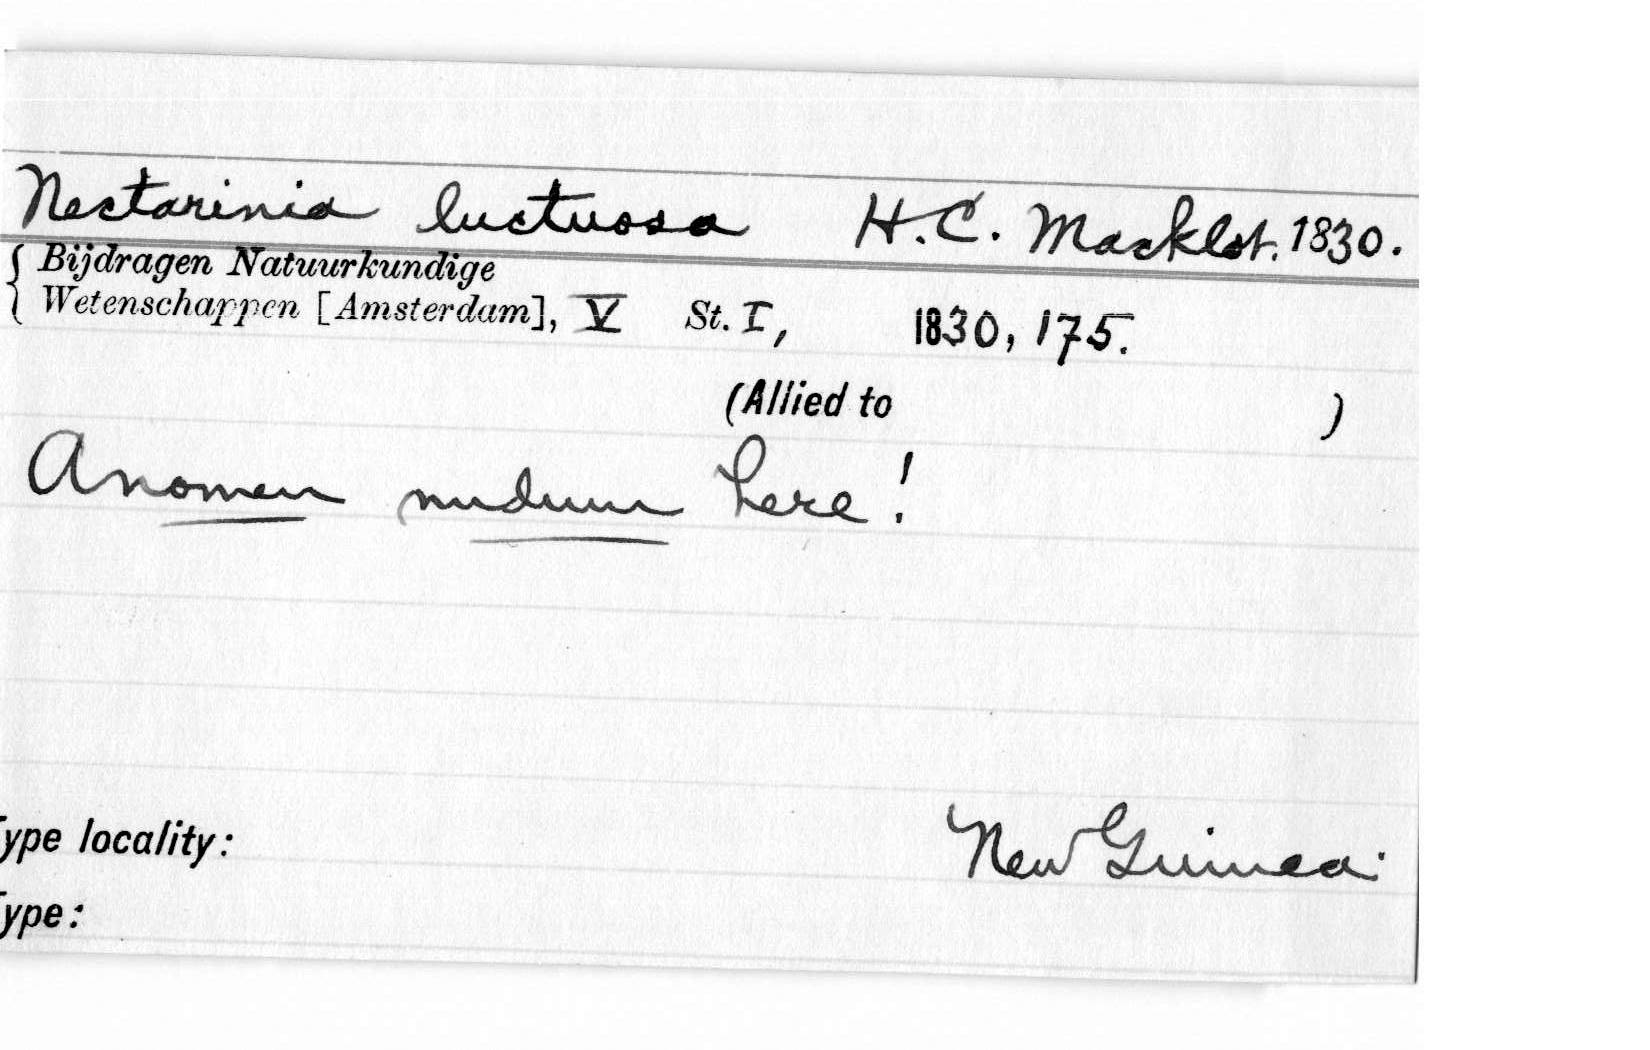 Nectarinia luctuosa H.C. Macklot. 1830.
{ Bijdragen Natuurkundige
Wetenschappen [Amsterdam], V St. I, 1830, 175.
(Allied to )
A nomen nudum here!
New Guinea.
Type locality:
Type: